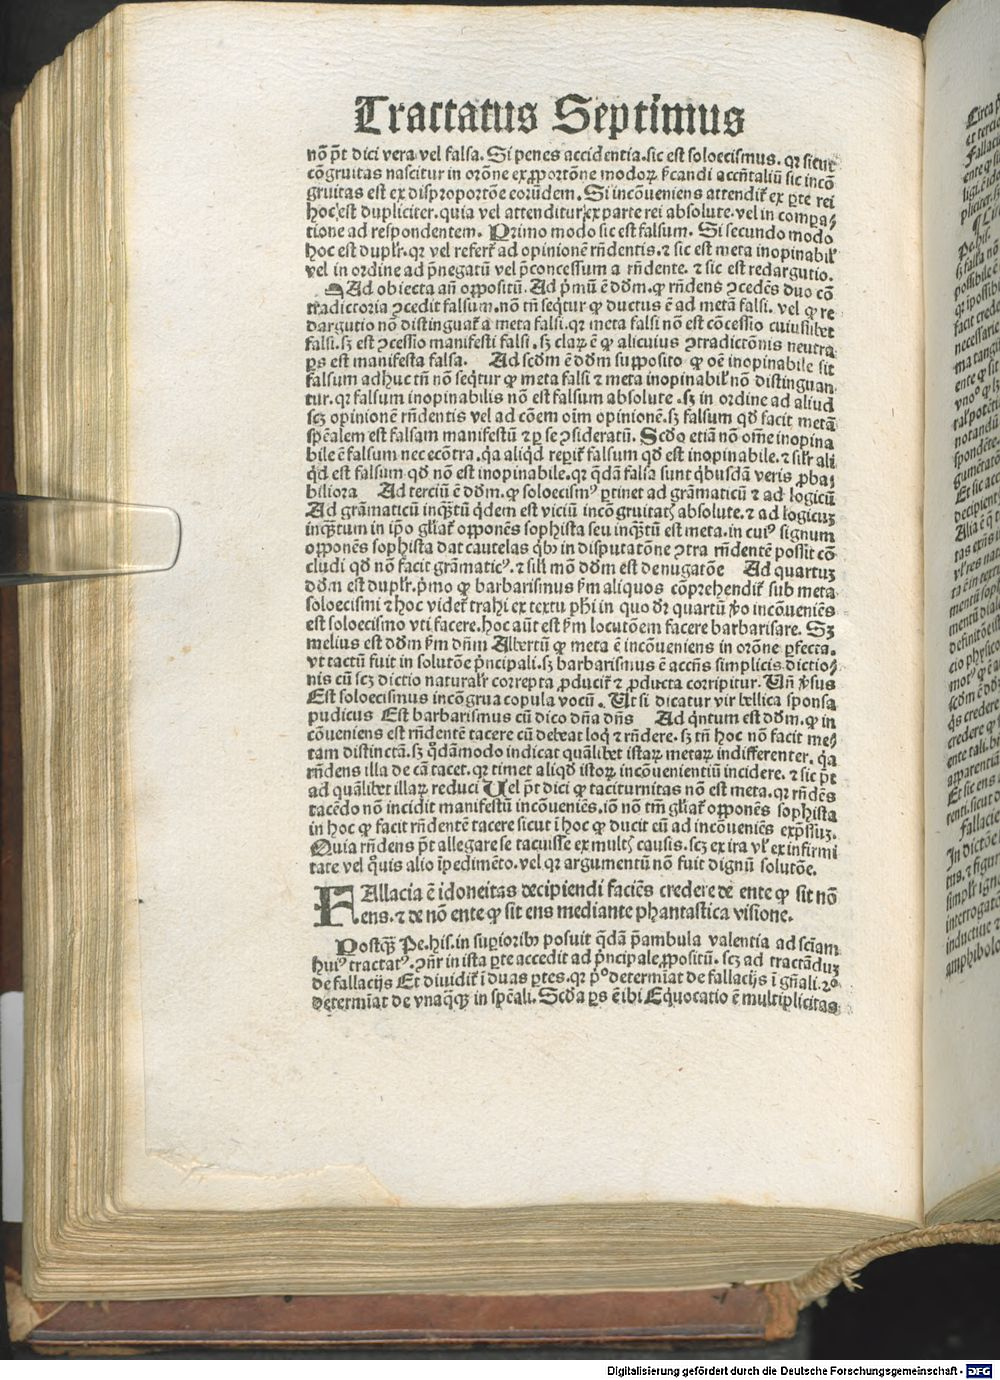 Tractatus Septimus
nō p̄t dici vera vel falsa. Si penes accidentia. sic est soloecismus. qꝛ sicut
cōgruitas nascitur in orōne ex ꝓportōne modoꝝ ẜcandi accn̄taliū sic incō
gruitas est ex disproportōe eorūdem. Si incōueniens attendit̄ ex ꝑte rei
hoc est dupliciter. quia vel attenditur ex parte rei absolute. vel in compa⸗
tione ad respondentem. Primo modo sic est falsum. Si secundo modo
hoc est duplr̄. qꝛ vel refert̄ ad opinionē rn̄dentis. ⁊ sic est meta inopinabil̄
vel in ordine ad p̄negatū vel p̄concessum a rn̄dente. ⁊ sic est redargutio.
Ad obiecta an̄ oppositū. Ad p̄mū ē dd̄m. ꝙ rn̄dens ꝯcedēs duo cō
tradictoria ꝯcedit falsum. nō tn̄ seq̄tur ꝙ ductus ē ad metā falsi. vel ꝙ re
dargutio nō distinguat̄ a meta falsi. qꝛ meta falsi nō est cōcessio cuiuslibet
falsi. sꝫ est ꝯcessio manifesti falsi. sꝫ claꝝ ē ꝙ alicuius ꝯtradictōnis neutra
ꝑs est manifesta falsa. Ad scd̄m ē dd̄m supposito ꝙ oē inopinabile sit
falsum adhuc tn̄ nō seq̄tur ꝙ meta falsi ⁊ meta inopinabil̄ nō distinguan
tur. qꝛ falsum inopinabilis nō est falsum absolute. sꝫ in ordine ad aliud
scꝫ opinionē rn̄dentis vel ad cōem oīm opinionē. sꝫ falsum qd̄ facit metā
sp̄ealem est falsam manifestū ⁊ ꝑ se ꝯsideratū. Scd̄o etiā nō om̄e inopina
bile ē falsum nec ecōtra. q̄a aliqd̄ reꝑit̄ falsum qd̄ est inopinabile. ⁊ silr̄ ali
q̄d est falsum qd̄ nō est inopinabile. qꝛ q̄dā falsa sunt q̄busdā veris ꝓba⸗
biliora Ad terciū ē dd̄m. ꝙ soloecismꝰ ꝑtinet ad grāmaticū ⁊ ad logicū
Ad grāmaticū inq̄ꝫtū q̄dem est viciū incōgruitatꝭ absolute. ⁊ ad logicuꝫ
inq̄ꝫtum in ip̄o gl̄iat̄ opponēs sophista seu inq̄ꝫtū est meta. in cuiꝰ signum
opponēs sophista dat cautelas q̄bꝫ in disputatōne ꝯtra rn̄dentē possit cō
cludi qd̄ nō facit grāmaticꝰ. ⁊ sili mō dd̄m est denugatōe Ad quartuꝫ
dd̄m est duplr̄. p̄mo ꝙ barbarismus ẜm aliquos cōprehendit̄ sub meta
soloecismi ⁊ hoc videt̄ trahi ex textu ph̄i in quo dr̄ quartū v̄o incōueniēs
est soloecismo vti facere. hoc aūt est ẜm locutōem facere barbarisare. Sꝫ
melius est dd̄m ẜm dn̄m Albertū ꝙ meta ē incōueniens in orōne ꝑfecta.
vt tactū fuit in solutōe p̄ncipali. sꝫ barbarismus ē accn̄s simplicis dictio⸗
nis cū scꝫ dictio naturalr̄ correpta ꝓducit̄ ⁊ ꝓducta corripitur. Vn̄ v̄sus
Est soloecismus incōgrua copula vocū. Vt si dicatur vir bellica sponsa
pudicus Est barbarismus cū dico dn̄a dn̄s Ad q̄ntum est dd̄m. ꝙ in
cōueniens est rn̄dentē tacere cū debeat loq̄ ⁊ rn̄dere. sꝫ tn̄ hoc nō facit me⸗
tam distinctā. sꝫ q̄dāmodo indicat quālibet istaꝝ metaꝝ indifferenter. q̄a
rn̄dens illa de cā tacet. qꝛ timet aliqd̄ istoꝝ incōuenientiū incidere. ⁊ sic p̄t
ad quālibet illaꝝ reduci Vel p̄t dici ꝙ taciturnitas nō est meta. qꝛ rn̄dēs
tacēdo nō incidit manifestū incōueniēs. iō nō tm̄ gl̄iat̄ opponēs sophista
in hoc ꝙ facit rn̄dentē tacere sicut ī hoc ꝙ ducit eū ad incōueniēs exp̄ssuꝫ.
Quia rn̄dens p̄t allegare se tacuisse ex multꝭ causis. scꝫ ex ira vl̄ ex infirmi
tate vel q̄uis alio īpedimēto. vel qꝛ argumentū nō fuit dignū solutōe.
FAllacia ē idoneitas decipiendi faciēs credere de ente ꝙ sit nō
ens. ⁊ de nō ente ꝙ sit ens mediante phantastica visione.
Postq̄ꝫ Pe. his. in superioribꝫ posuit q̄dā p̄ambula valentia ad sciam
huiꝰ tractatꝰ. ꝯn̄r in ista ꝑte accedit ad p̄ncipale ꝓpositū. scꝫ ad tractāduꝫ
de fallacijs Et diuidit̄ ī duas ꝑtes. qꝛ p̄ͦ determīat de fallacijs ī gn̄ali. 2ͦ
determīat de vnaq̄ꝫqꝫ in sp̄eali. Scd̄a ꝑs ē ibi Eq̄uocatio ē multiplicitas
Digitalisierung gefördert durch die Deutsche Forschungsgemeinschaft - DFG